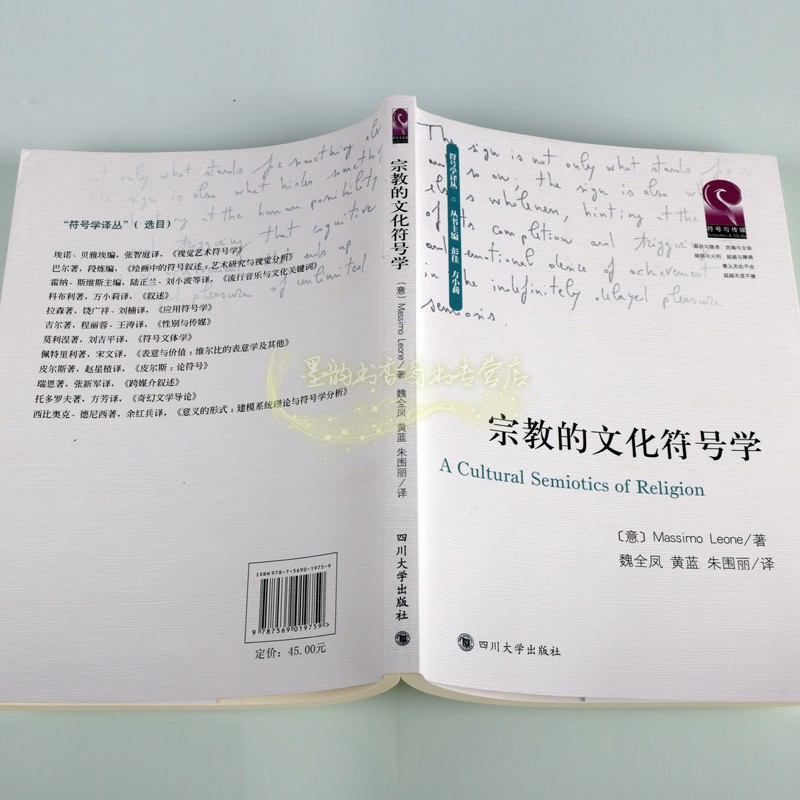 only what stands for something
the sign is also what hides something
hinting at the human possibility
triggering that cognitive
ends up
pleasure of unlimited
“符号学译丛”（选目）
埃诺、贝雅埃编，张智庭译，《视觉艺术符号学》
巴尔著，段炼编，《绘画中的符号叙述：艺术研究与视觉分析》
霍纳、斯维斯主编，陆正兰、刘小波等译，《流行音乐与文化关键词》
科布利著，方小莉译，《叙述》
拉森著，饶广祥、刘楠译，《应用符号学》
吉尔著，程丽蓉、王涛译，《性别与传媒》
莫利涅著，刘吉平译，《符号文体学》
佩特里利著，宋文译，《表意与价值：维尔比的表意学及其他》
皮尔斯著，赵星植译，《皮尔斯：论符号》
瑞恩著，张新军译，《跨媒介叙述》
托多罗夫著，方芳译，《奇幻文学导论》
西比奥克、德尼西著，余红兵译，《意义的形式：建模系统理论与符号学分析》
ISBN 978-7-5690-1975-9
9 787569 019759 >
定价：45.00元
符号与传媒
宗教的文化符号学
〔意〕Massimo Leone/著
魏全凤 黄蓝 朱围丽/译
四川大学出版社
符号学译丛 丛书主编 彭佳 方小莉
The sign is not only what stands
and so on, the sign is also
wholeness, hinting at the
of its completion and triggering
and emotional device of achievement
in the indefinitely delayed pleasure
semiosis.
符号与传媒
Semiotics & Media
墨韵书香图书专营店
宗教的文化符号学
A Cultural Semiotics of Religion
〔意〕Massimo Leone/著
魏全凤 黄蓝 朱围丽/译
四川大学出版社